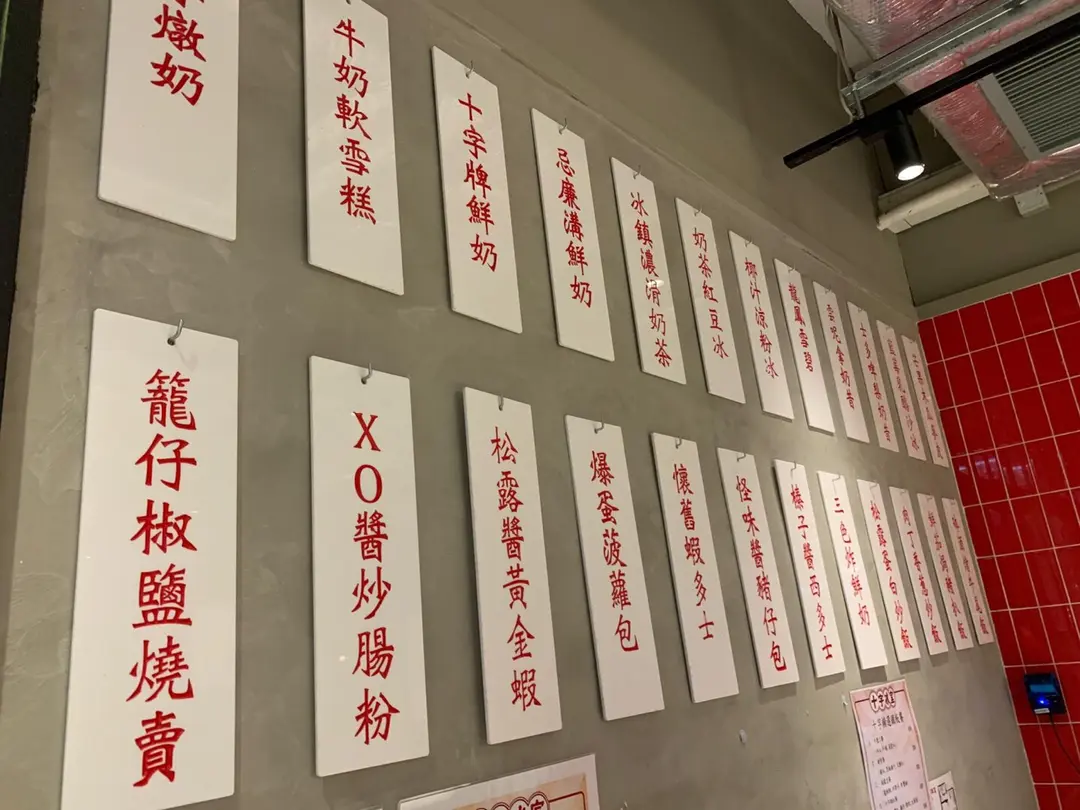 燉奶
牛奶軟雪糕
十字牌鮮奶
忌廉溝鮮奶
冰鎮濃滑奶茶
奶茶紅豆冰
椰汁涼粉冰
龍鳳雪碧
雲呢拿奶昔
士多啤梨奶昔
籠仔椒鹽燒賣
XO醬炒腸粉
松露醬黃金蝦
爆蛋菠蘿包
懷舊蝦多士
怪味醬豬仔包
榛子醬西多士
三色炸鮮奶
松露蛋白炒飯
肉丁香蔥炒飯
鮮茄焗豬扒飯